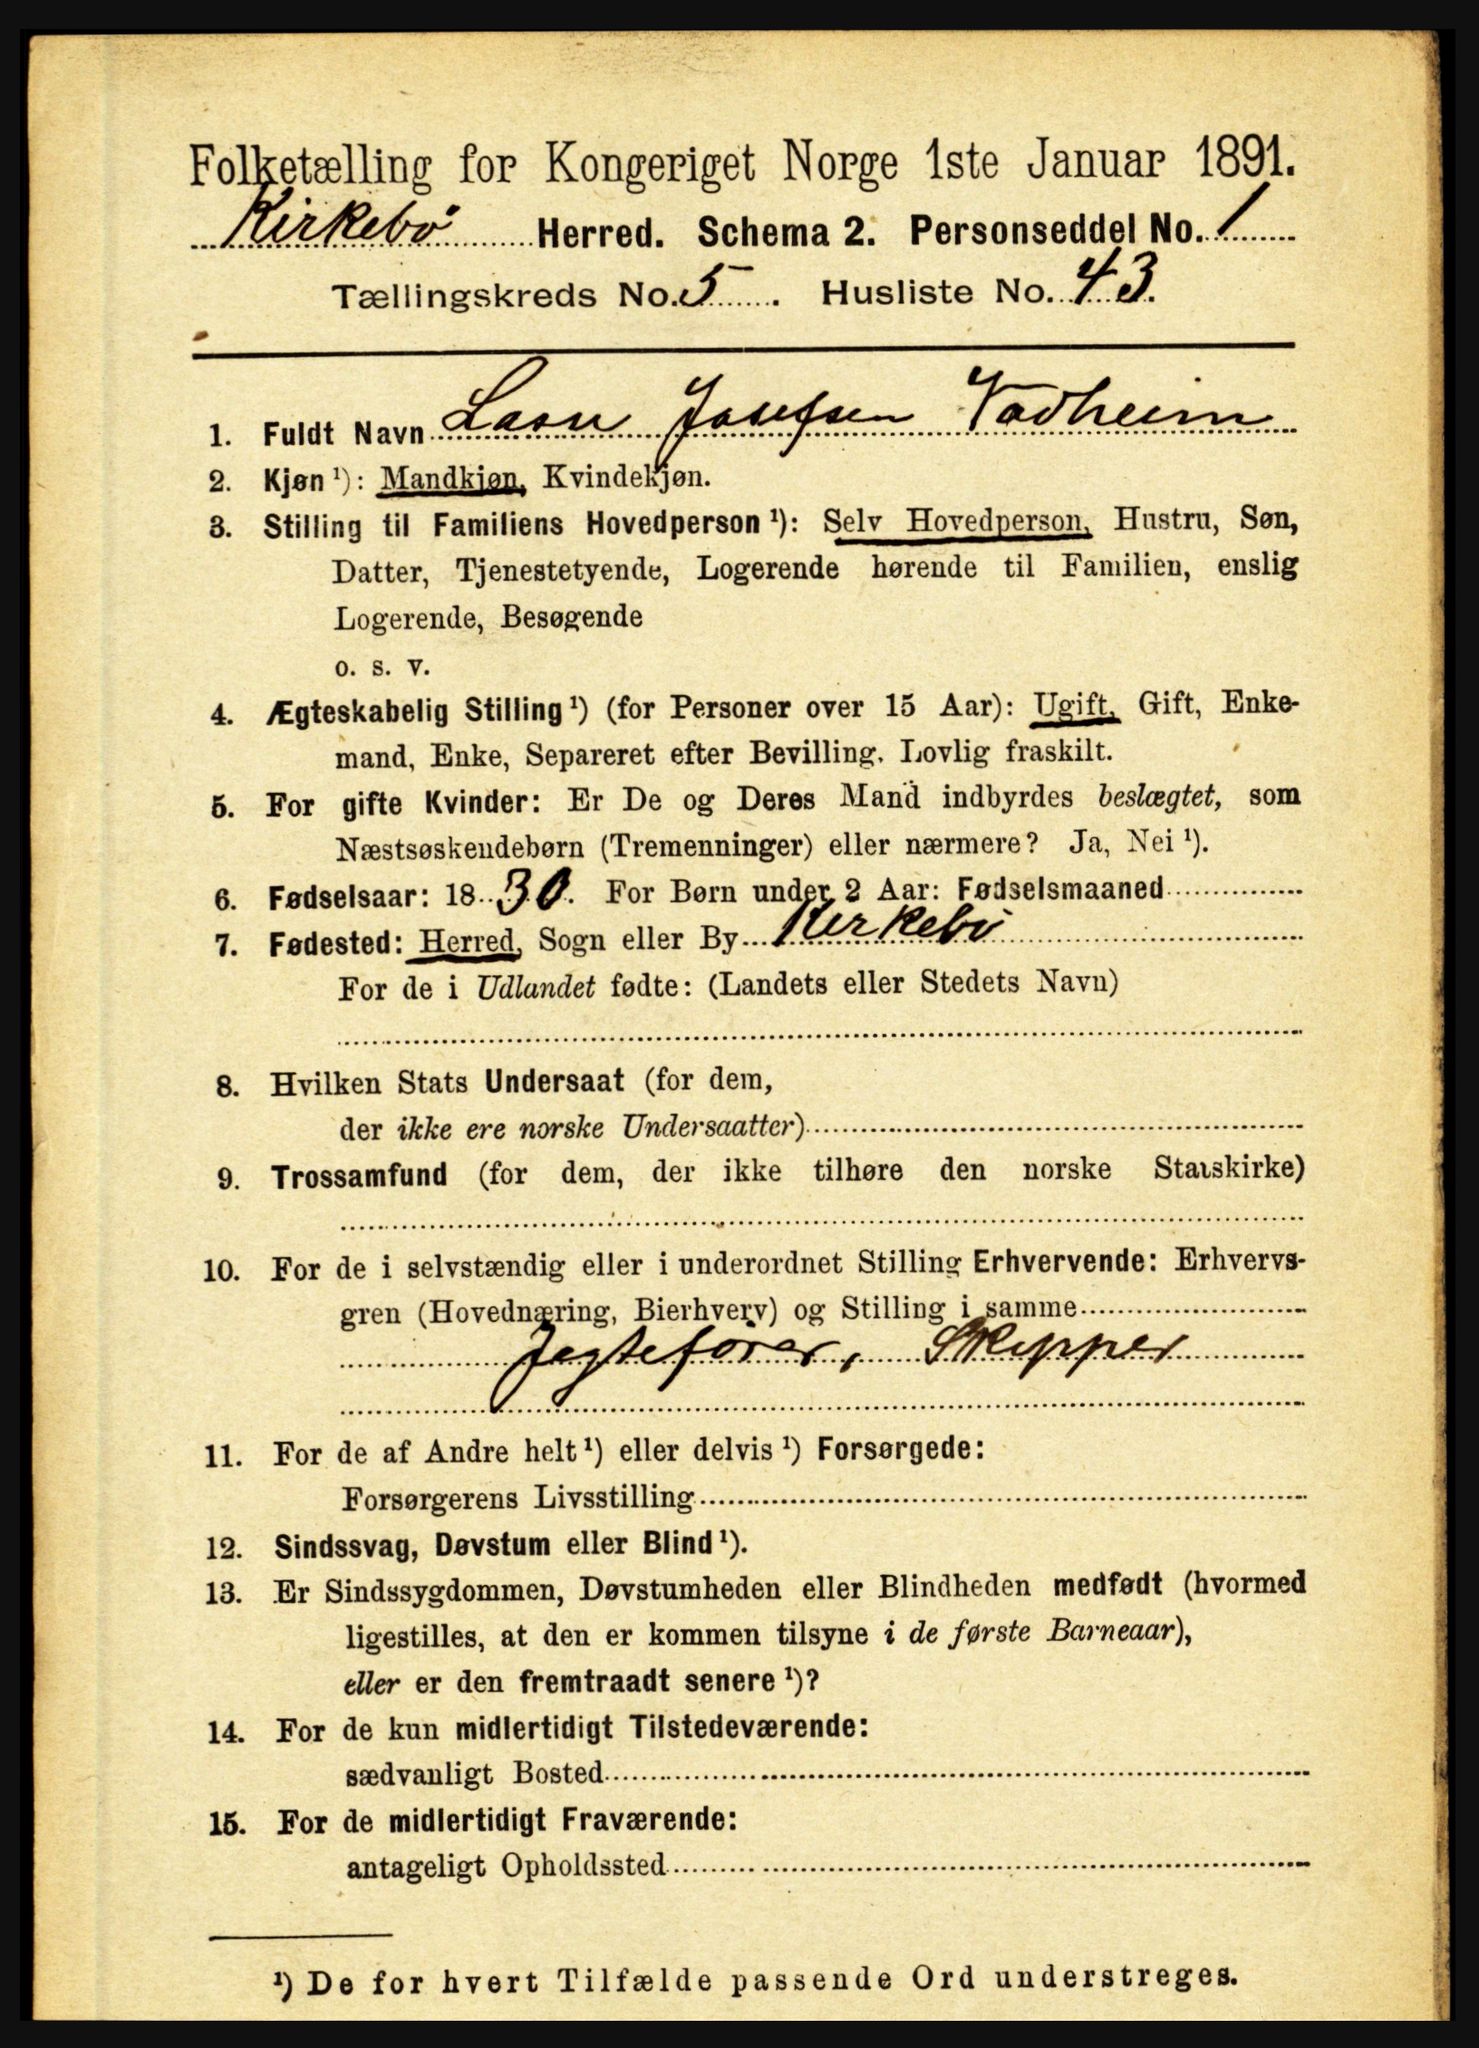 Folketælling for Kongeriget Norge 1ste Januar 1891.
Kirkebö Herred. Schema 2. Personseddel No. 1
Tællingskreds No. 5. Husliste No. 43.
1. Fuldt Navn Josefsen Vadheim
2. Kjøn ¹): Mandkjøn, Kvindekjøn.
3. Stilling til Familiens Hovedperson ¹): Selv Hovedperson, Hustru, Søn,
Datter, Tjenestetyende, Logerende hørende til Familien, enslig
Logerende, Besøgende
o. s. v.
4. Ægteskabelig Stilling ¹) (for Personer over 15 Aar): Ugift, Gift, Enke-
mand, Enke, Separeret efter Bevilling, Lovlig fraskilt.
5. For gifte Kvinder: Er De og Deres Mand indbyrdes beslægtet, som
Næstsøskendebørn (Tremenninger) eller nærmere? Ja, Nei ¹).
6. Fødselsaar: 1830. For Børn under 2 Aar: Fødselsmaaned
7. Fødested: Herred, Sogn eller By Kirkebö
For de i Udlandet fødte: (Landets eller Stedets Navn)
8. Hvilken Stats Undersaat (for dem,
der ikke ere norske Undersaatter)
9. Trossamfund (for dem, der ikke tilhøre den norske Statskirke)
10. For de i selvstændig eller i underordnet Stilling Erhvervende: Erhvervs-
gren (Hovednæring, Bierhverv) og Stilling i samme
Jegtefører, Skipper
11. For de af Andre helt ¹) eller delvis ¹) Forsørgede:
Forsørgerens Livsstilling
12. Sindssvag, Døvstum eller Blind ¹).
13. Er Sindssygdommen, Døvstumheden eller Blindheden medfødt (hvormed
ligestilles, at den er kommen tilsyne i de første Barneaar),
eller er den fremtraadt senere ¹)?
14. For de kun midlertidigt Tilstedeværende:
sædvanligt Bosted
15. For de midlertidigt Fraværende:
antageligt Opholdssted
¹) De for hvert Tilfælde passende Ord understreges.